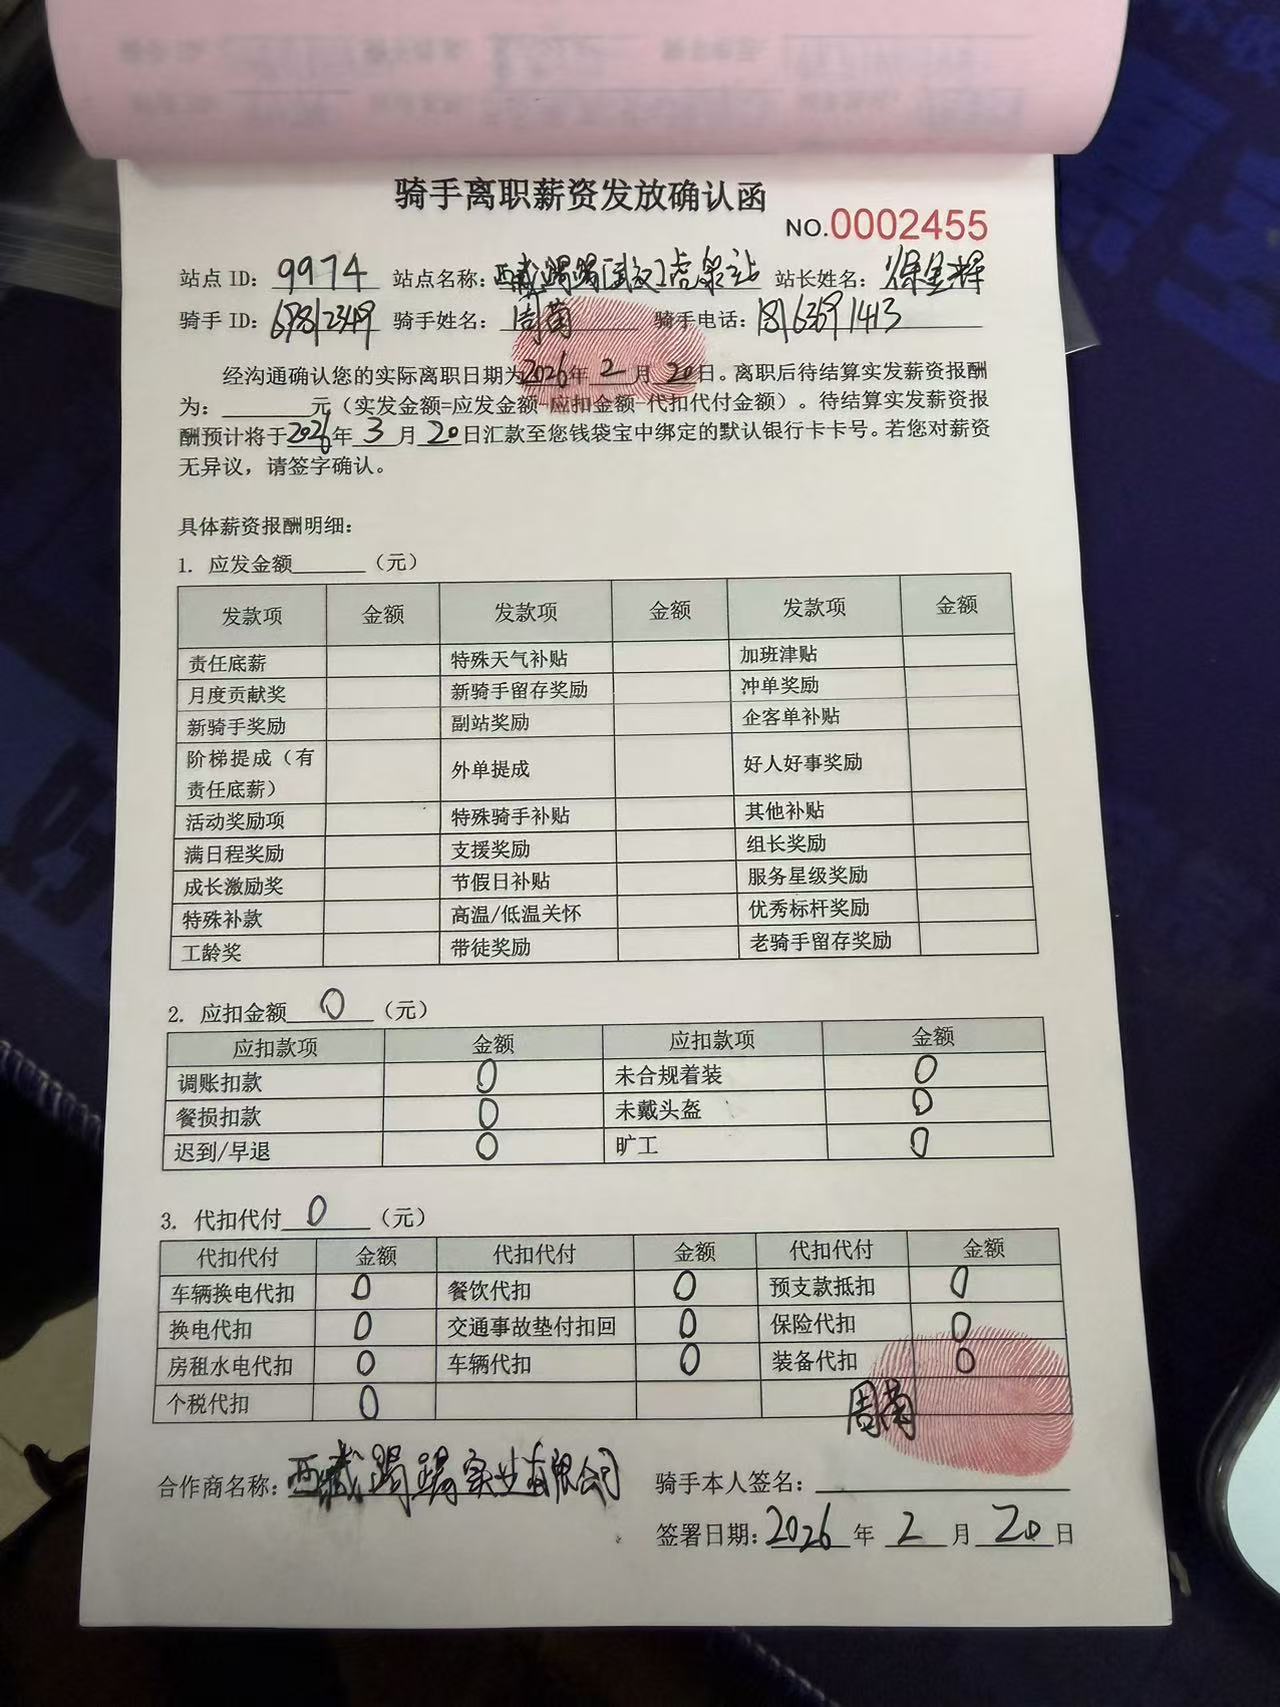 骑手离职薪资发放确认函
NO.0002455
站点 ID: 9974 站点名称: 西藏踢踢武汉虎泉站 站长姓名:
骑手 ID: 骑手姓名: 周菊 骑手电话:
经沟通确认您的实际离职日期为2026年2月20日。离职后待结算实发薪资报酬
为:______元（实发金额=应发金额-应扣金额-代扣代付金额）。待结算实发薪资报
酬预计将于2026年3月20日汇款至您钱袋宝中绑定的默认银行卡卡号。若您对薪资
无异议，请签字确认。
具体薪资报酬明细:
1. 应发金额______（元）
发款项 金额 发款项 金额 发款项 金额
责任底薪 特殊天气补贴 加班津贴
月度贡献奖 新骑手留存奖励 冲单奖励
新骑手奖励 副站奖励 企客单补贴
阶梯提成（有责任底薪） 外单提成 好人好事奖励
活动奖励项 特殊骑手补贴 其他补贴
满日程奖励 支援奖励 组长奖励
成长激励奖 节假日补贴 服务星级奖励
特殊补款 高温/低温关怀 优秀标杆奖励
工龄奖 带徒奖励 老骑手留存奖励
2. 应扣金额 0 （元）
应扣款项 金额 应扣款项 金额
调账扣款 0 未合规着装 0
餐损扣款 0 未戴头盔 0
迟到/早退 0 旷工 0
3. 代扣代付 0 （元）
代扣代付 金额 代扣代付 金额 代扣代付 金额
车辆换电代扣 0 餐饮代扣 0 预支款抵扣 0
换电代扣 0 交通事故垫付扣回 0 保险代扣 0
房租水电代扣 0 车辆代扣 0 装备代扣 0
个税代扣 0
周菊
合作商名称: 西藏踢踢实业有限公司 骑手本人签名:
签署日期: 2026 年 2 月 20 日